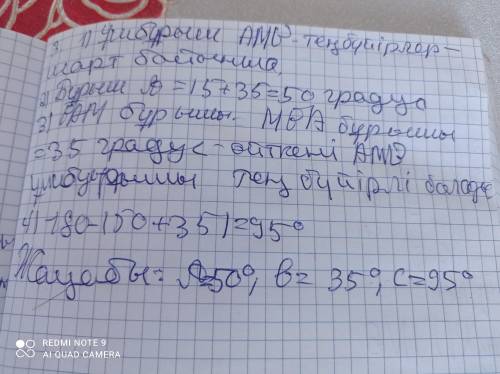 3. 1) Үшбұрыш АМВ-теңбүйірлер-
шарт бойынша.
2) Бұрыш А = 15+35=50 градус
3) ВАМ бұрышы. МВА бұрышы
=35 градус-өйткені АМВ
үшбұрышы тең бүйірлі болады
4) 180-(50+35)=95°
Жауабы: А=50°, В= 35°, С=95°
REDMI NOTE 9
AI QUAD CAMERA